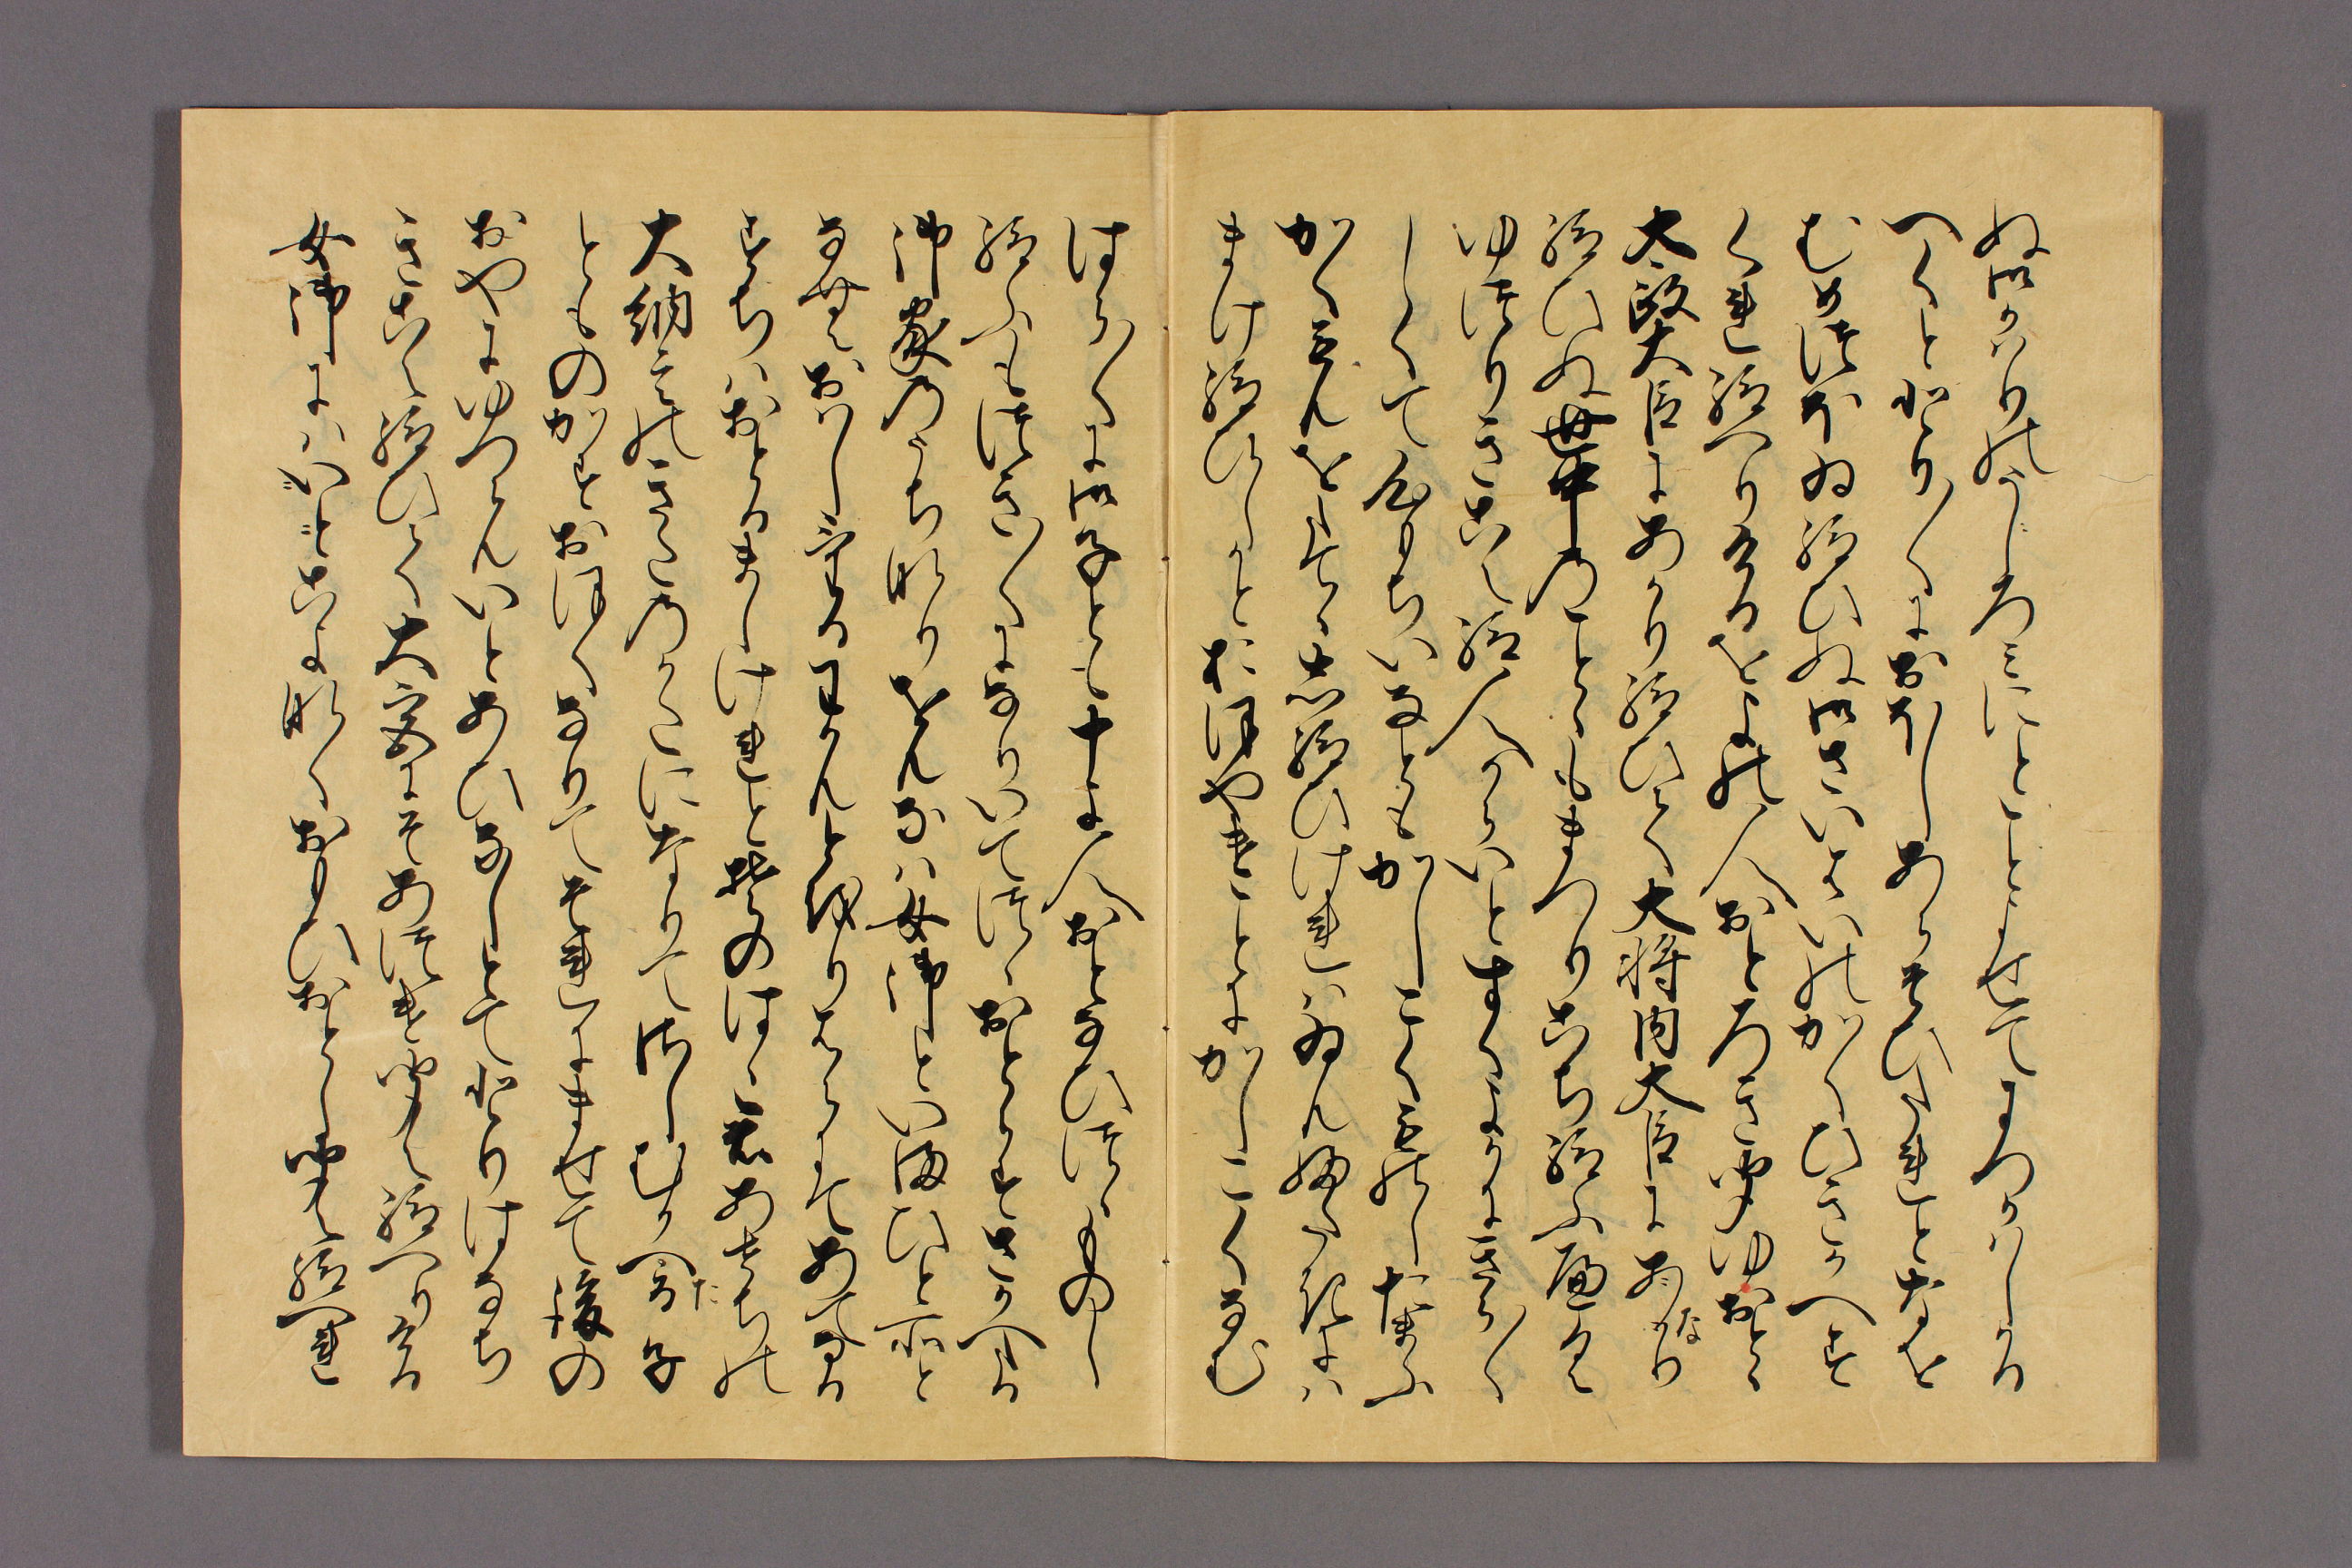 ぬ御かはりのうしろみにとことよせてまつかはしかる
へくととり〱におほしあらそひたれとなを
むめつほゐ給ひぬ御さいはひのかくひきかへす
くれ給へりけるをよの人おとろききこゆおとゝ
太政大臣にあかり給ひて大将内大臣になり
給ひぬ世中のことゝもまつりこち給ふへく
ゆつりきこえ給人からいとすくよかにきら〱
しくて心もちいなともかしこくものしたまふ
かくもんをたてゝし給ひけれはゐんふたきには
まけ給ひしかとおほやけことにかしこくなむ
はら〱に御子とも十よ人おとなひつゝものし
給ふもつき〱になりいてつゝおとらすさかへたる
御家のうちなりをんなは女御といまひと所と
なむおはしけるわかんとをりはらにてあてなる
すちはおとるましけれとそのはゝ君あせちの
大納言のきたのかたになりてさしむかへる子
とものかすおほくなりてそれにませて後の
おやにゆつらんいとあひなしとてとりはなち
きこえ給ひて大宮にそあつけきこえ給へりける
女御にはこよなくおもひおとしきこえ給へれ